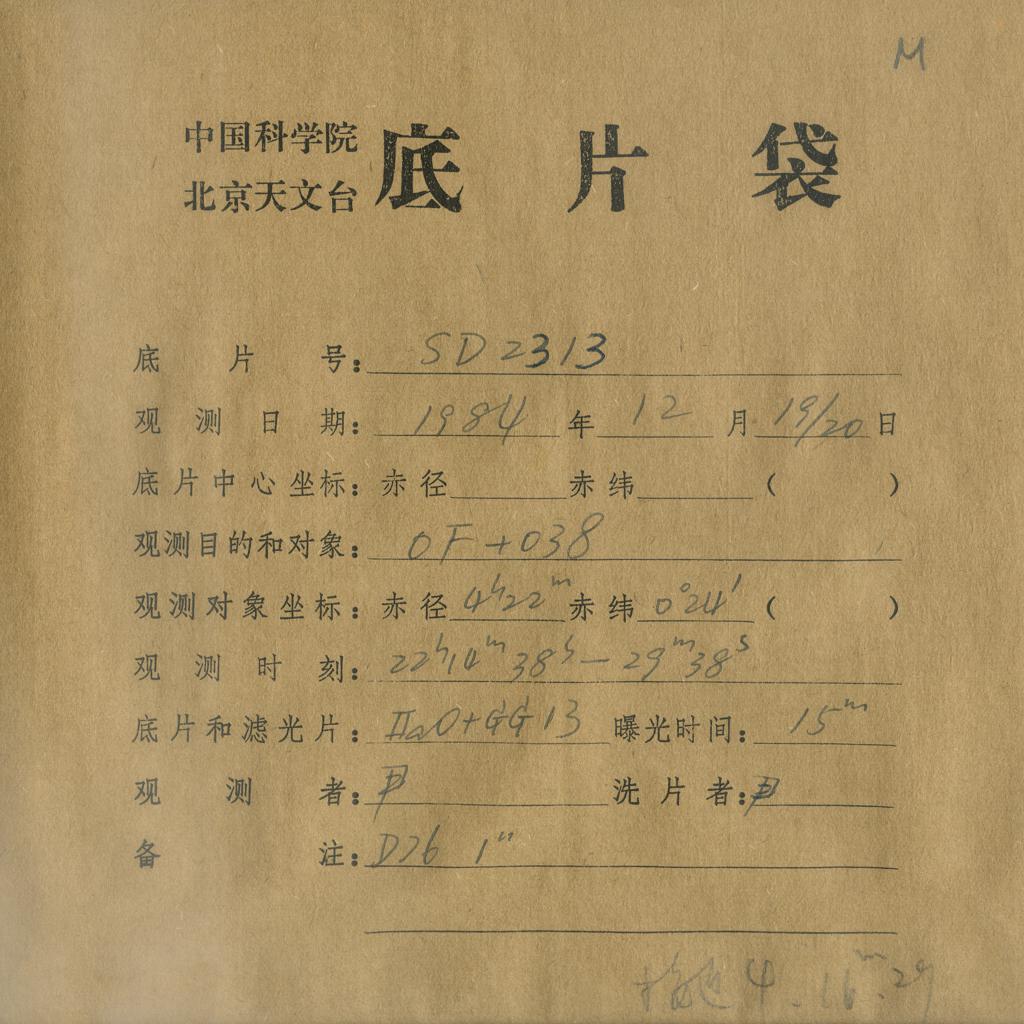 M
中国科学院
北京天文台 底片袋
底片号：SD2313
观测日期：1984年12月19/20日
底片中心坐标：赤径 赤纬 （ ）
观测目的和对象：OF+038
观测对象坐标：赤径4h22m赤纬0°24′（ ）
观测时刻：22h14m38s—29m38s
底片和滤光片：IIaO+GG13 曝光时间：15m
观测者：尹 洗片者：尹
备注：D76 1"
4